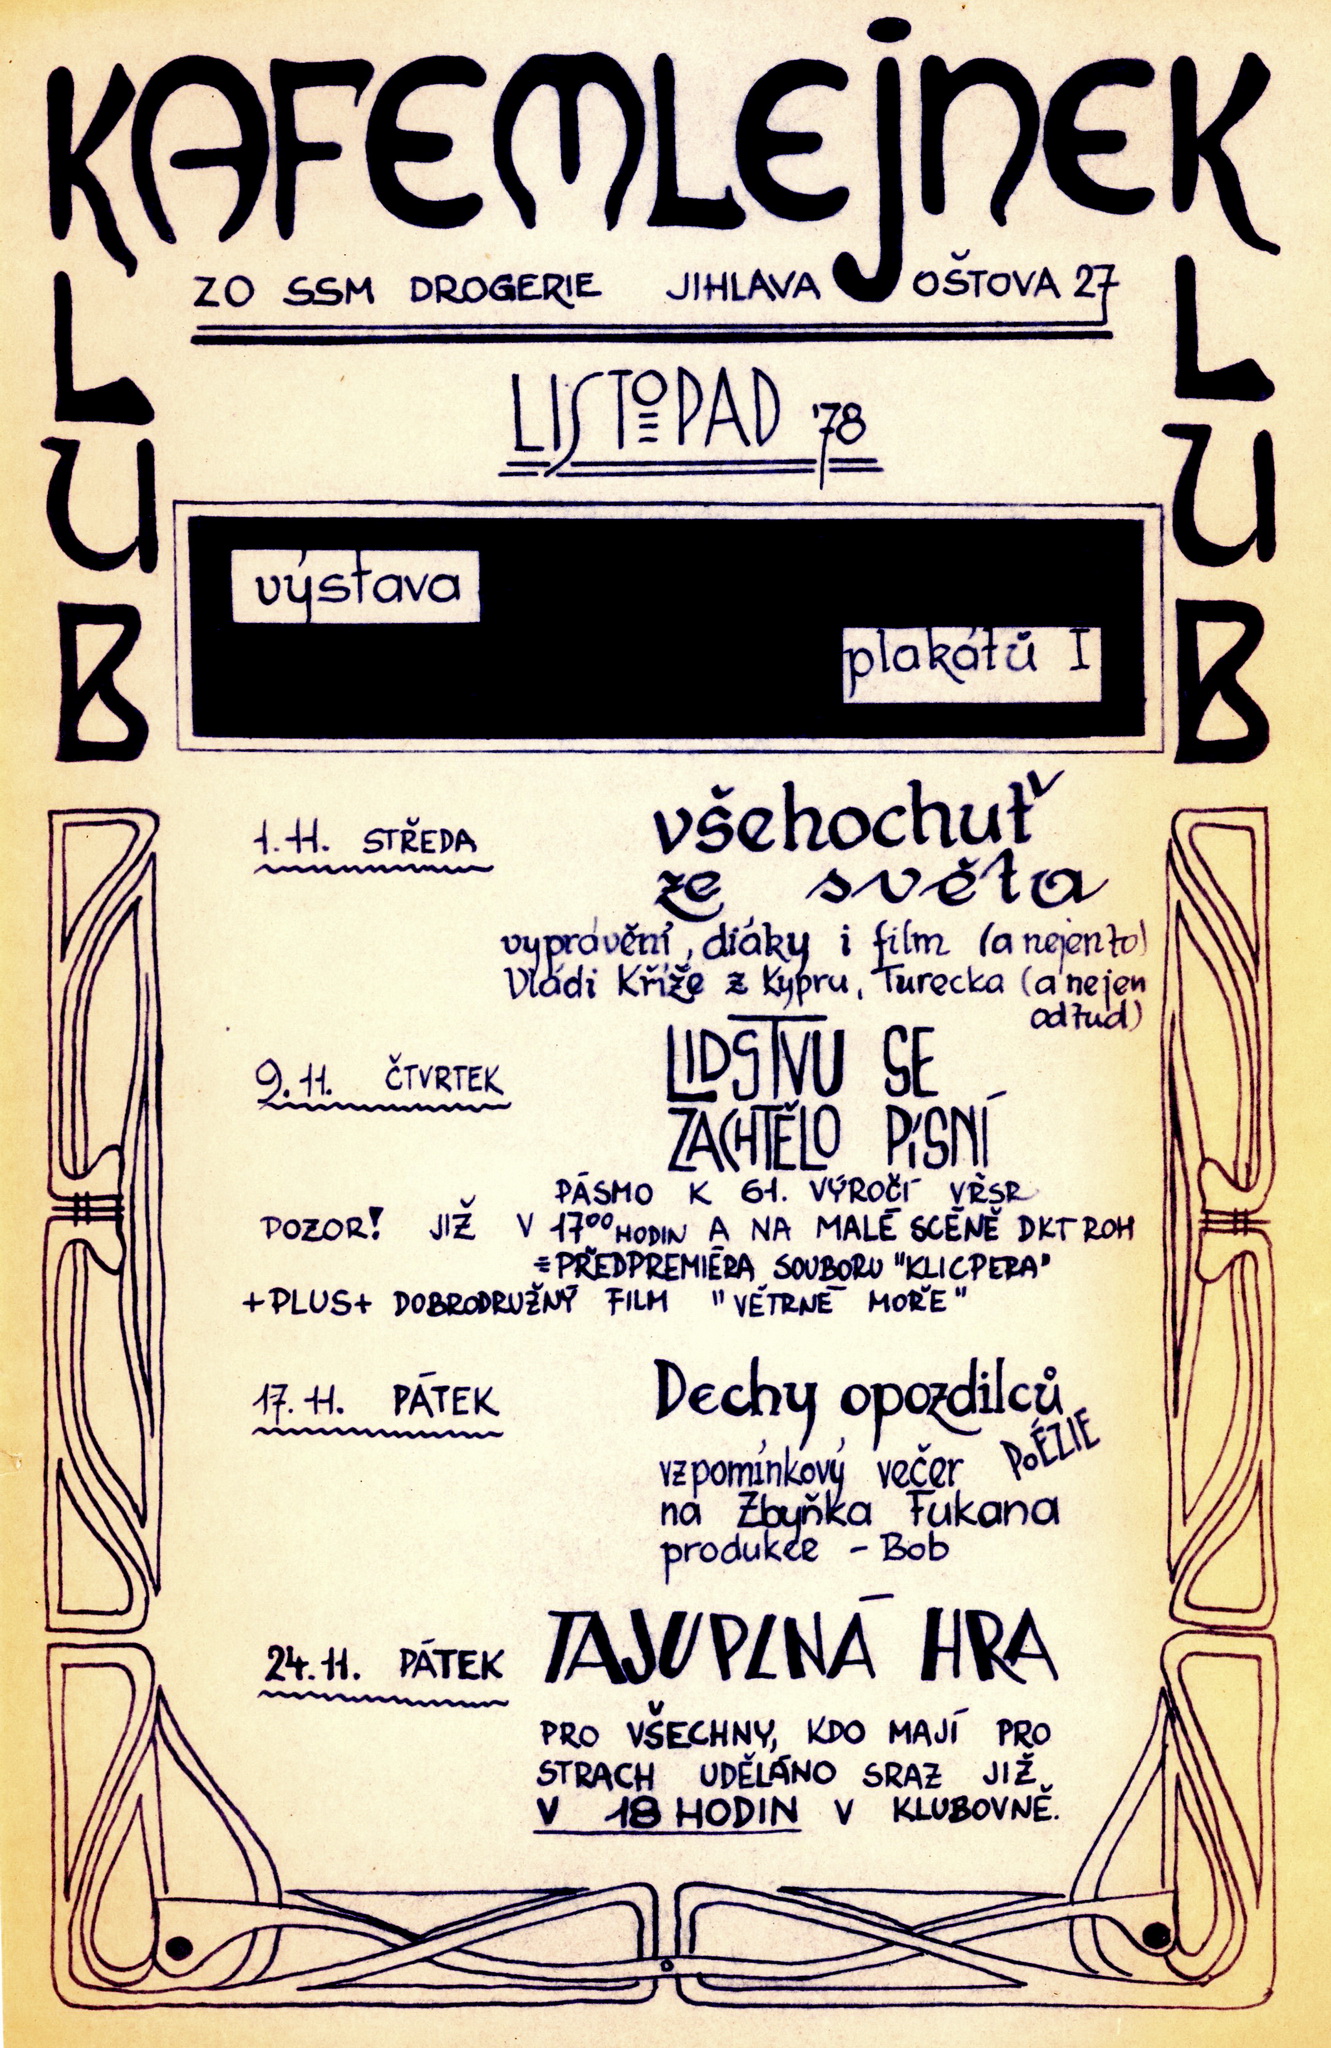 KAFEMLEJNEK
KLUB
KLUB
ZO SSM DROGERIE JIHLAVA OŠTOVA 27
LISTOPAD '78
výstava
plakátů I
1.11. STŘEDA
všehochuť
ze světa
vyprávění, diáky i film (a nejen to)
Vládi Kříže z Kypru, Turecka (a nejen
odtud)
9.11. ČTVRTEK
LIDSTVU SE
ZACHTĚLO PÍSNÍ
PÁSMO K 61. VÝROČÍ VŘSR
POZOR! JIŽ V 17⁰⁰ HODIN A NA MALÉ SCÉNĚ DKT ROH
=PŘEDPREMIÉRA SOUBORU "KLICPERA"
+PLUS+ DOBRODRUŽNÝ FILM "VĚTRNÉ MOŘE"
17.11. PÁTEK
Dechy opozdilců
POÉZIE
vzpomínkový večer
na Zbyňka Fukana
produkce - Bob
24.11. PÁTEK
TAJUPLNÁ HRA
PRO VŠECHNY, KDO MAJÍ PRO
STRACH UDĚLÁNO SRAZ JIŽ
V 18 HODIN V KLUBOVNĚ.